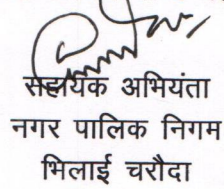 सहायक अभियंता
नगर पालिक निगम
भिलाई चरौदा